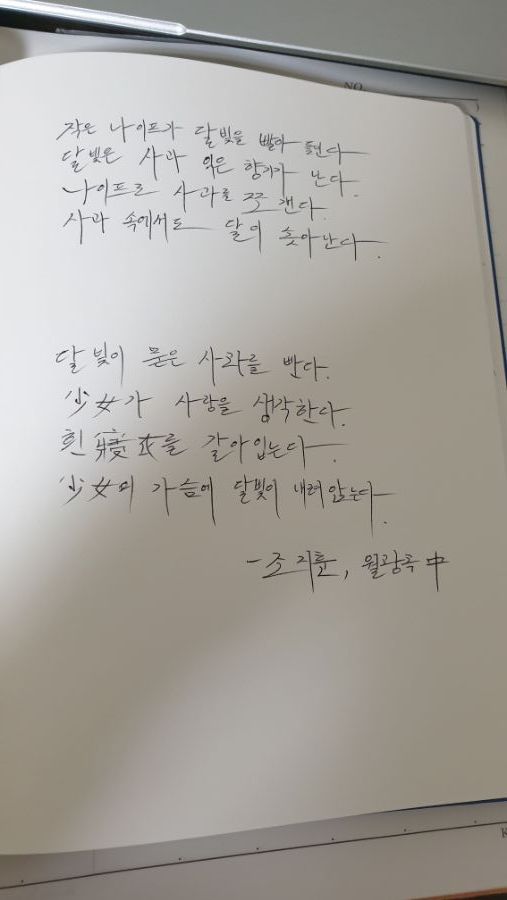 NO.
작은 나이프가 달빛을 빨아 들인다
달빛은 사과 익은 향기가 난다.
나이프로 사과를 쪼갠다.
사과 속에서도 달이 솟아난다.
달빛이 묻은 사과를 빤다.
少女가 사랑을 생각한다.
흰 寢衣를 갈아입는다.
少女의 가슴에 달빛이 내려앉는다.
- 조지훈, 월광곡 中